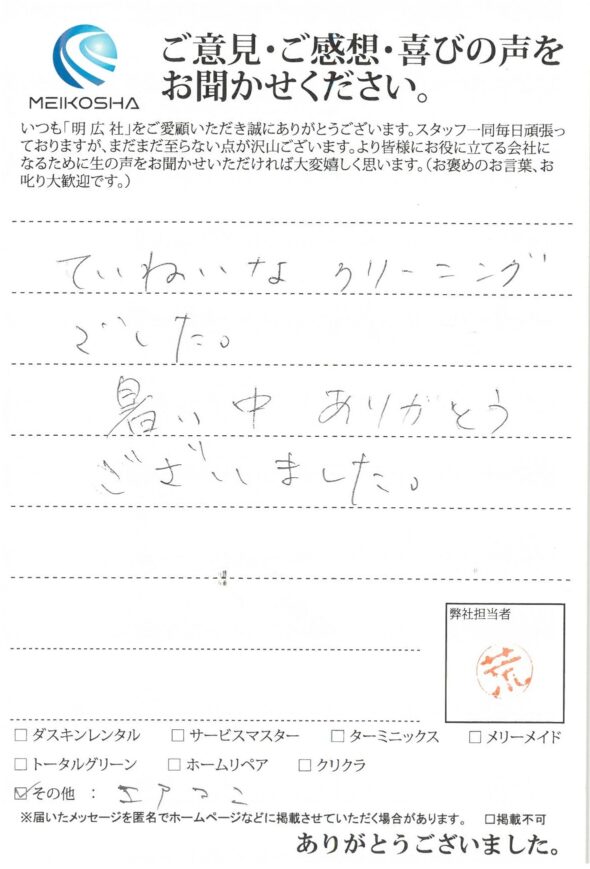 MEIKOSHA
ご意見・ご感想・喜びの声を
お聞かせください。
いつも「明広社」をご愛顧いただき誠にありがとうございます。スタッフ一同毎日頑張っ
ておりますが、まだまだ至らない点が沢山ございます。より皆様にお役に立てる会社に
なるために生の声をお聞かせいただければ大変嬉しく思います。（お褒めのお言葉、お
叱り大歓迎です。）
ていねいな クリーニング
でした。
暑い中 ありがとう
ございました。
弊社担当者
荒
□ダスキンレンタル □サービスマスター □ターミニックス □メリーメイド
□トータルグリーン □ホームリペア □クリクラ
☑その他 ： エアコン
※届いたメッセージを匿名でホームページなどに掲載させていただく場合があります。 □掲載不可
ありがとうございました。